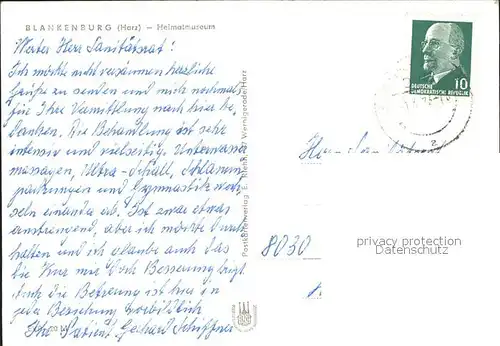 BLANKENBURG (Harz) — Heimatmuseum
Werter Herr Sanitätsrat!
Ich möchte nicht versäumen herzliche
Grüße zu senden und mich nochmals
für Ihre Vermittlung nach hier be-
danken. Die Behandlung ist sehr
intensiv und vielseitig. Unterwasser
massagen, Ultra-Schall, Schlamm
packungen und Gymnastik wech
seln einander ab. Ist zwar etwas
anstrengend, aber ich möchte durch
halten und ich glaube auch das
die Kur mir doch Besserung bringt
Auch die Betreuung ist hier in
jeder Beziehung vorbildlich
Ihr Patient Gerhard Schiffner
Postkartenverlag E. Wernigerode/Harz
DEUTSCHE
DEMOKRATISCHE REPUBLIK
10
Herrn Sanitätsrat
8030
privacy protection
Datenschutz